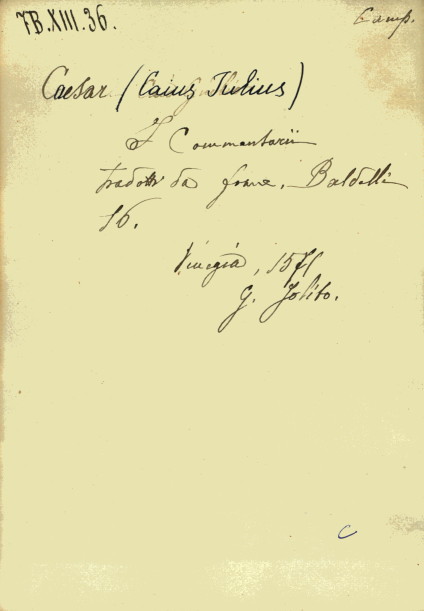 7B.XIII.36.
Camp.
Caesar (Caius Julius)
I Commentarii
tradotti da Franc. Baldelli
16.
Vinegia, 1571
G. Jolito.
C